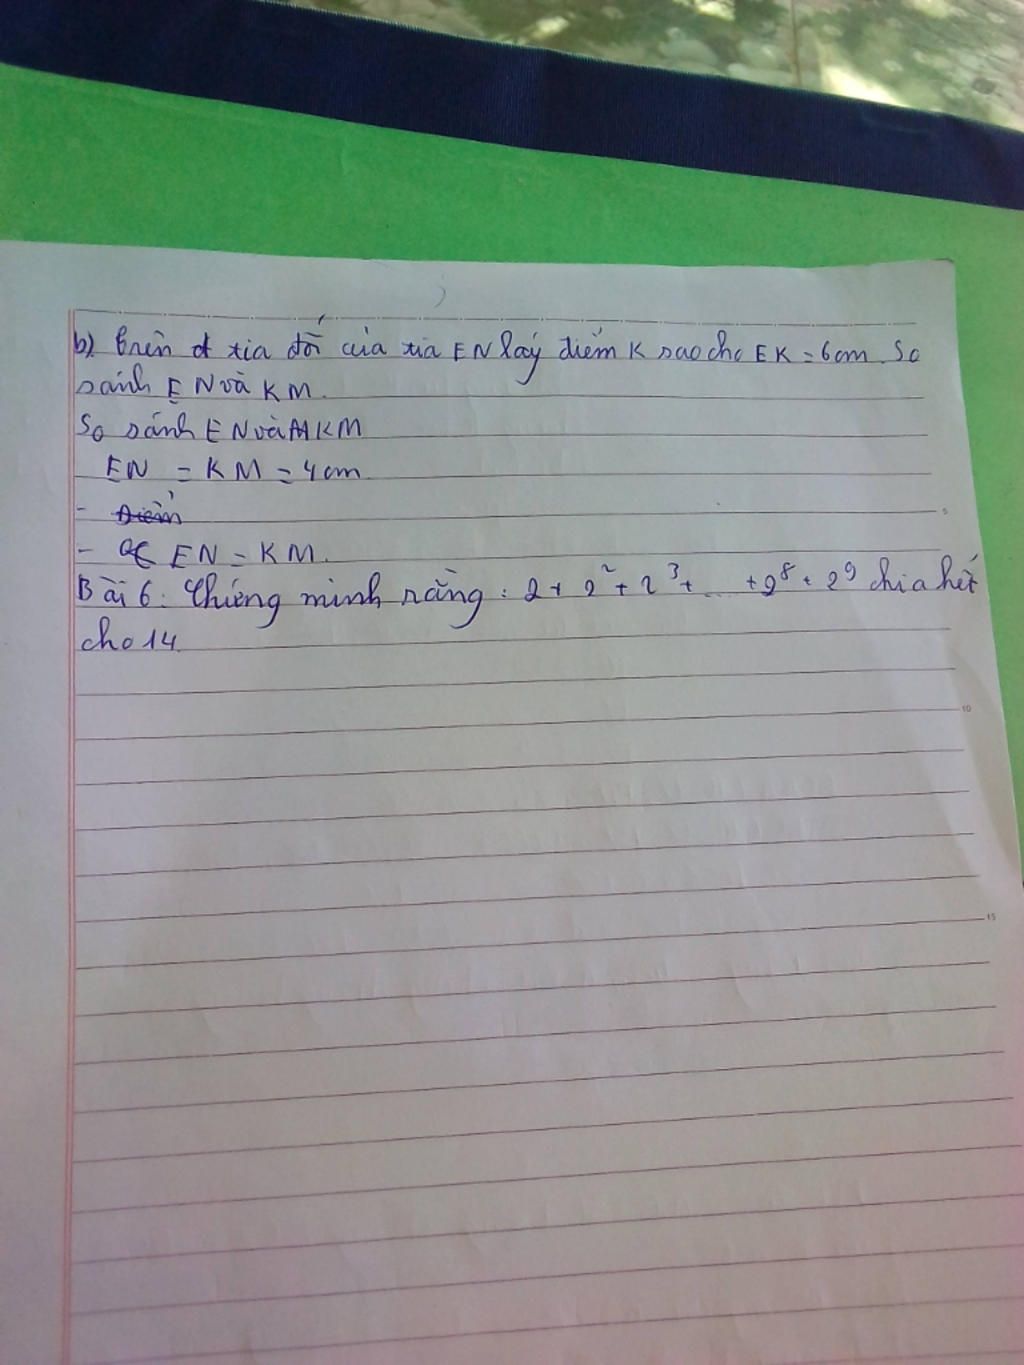 b) Trên tia đối của tia EN lấy điểm K sao cho EK = 6cm. So
sánh EN và KM.
So sánh EN và KM
EN = KM = 4cm
- Điểm
- EN = KM.
5
Bài 6: Chứng minh rằng: 2 + 2² + 2³ + ... + 2⁸ + 2⁹ chia hết
cho 14.
10
15